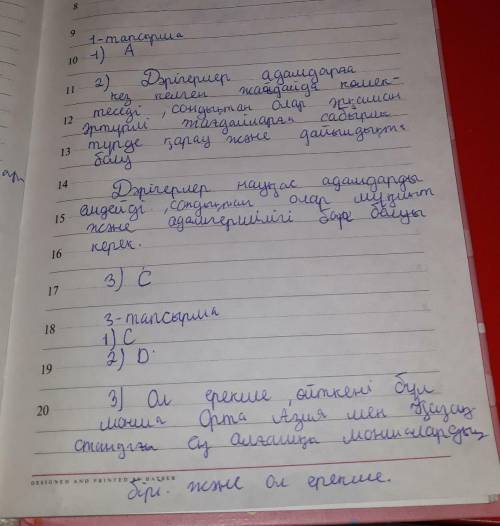 8
9
1-тапсырма
10 1) А
11 2) Дәрігерлер адамдарға
кез келген жағдайда көмек-
12 теседі, сондықтан олар
әртүрлі жағдайларға сабырлы
13 түрде қарау және дайындықты
болу
14 Дәрігерлер науқас адамдарды
емдейді, сондықтан олар мұқият
15 және адамгершілігі бар болуы
16 керек.
17 3) С
18 3-тапсырма
1) С
19 2) D.
20 3) Ол ерекше, өйткені бұл
монша Орта Азия мен Қазақ
стандағы ең алғашқы моншалардың
DESIGNED AND PRINTED BY
бірі. және ол ерекше.
ар